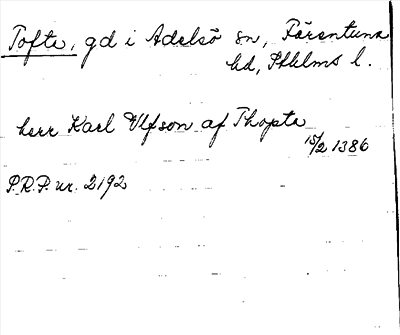 Tofta, gd i Adelsö sn, Färentuna
hd, Sthlms l.
herr Karl Ulfson af Thopta
15/2 1386
P.R.P. nr. 2192